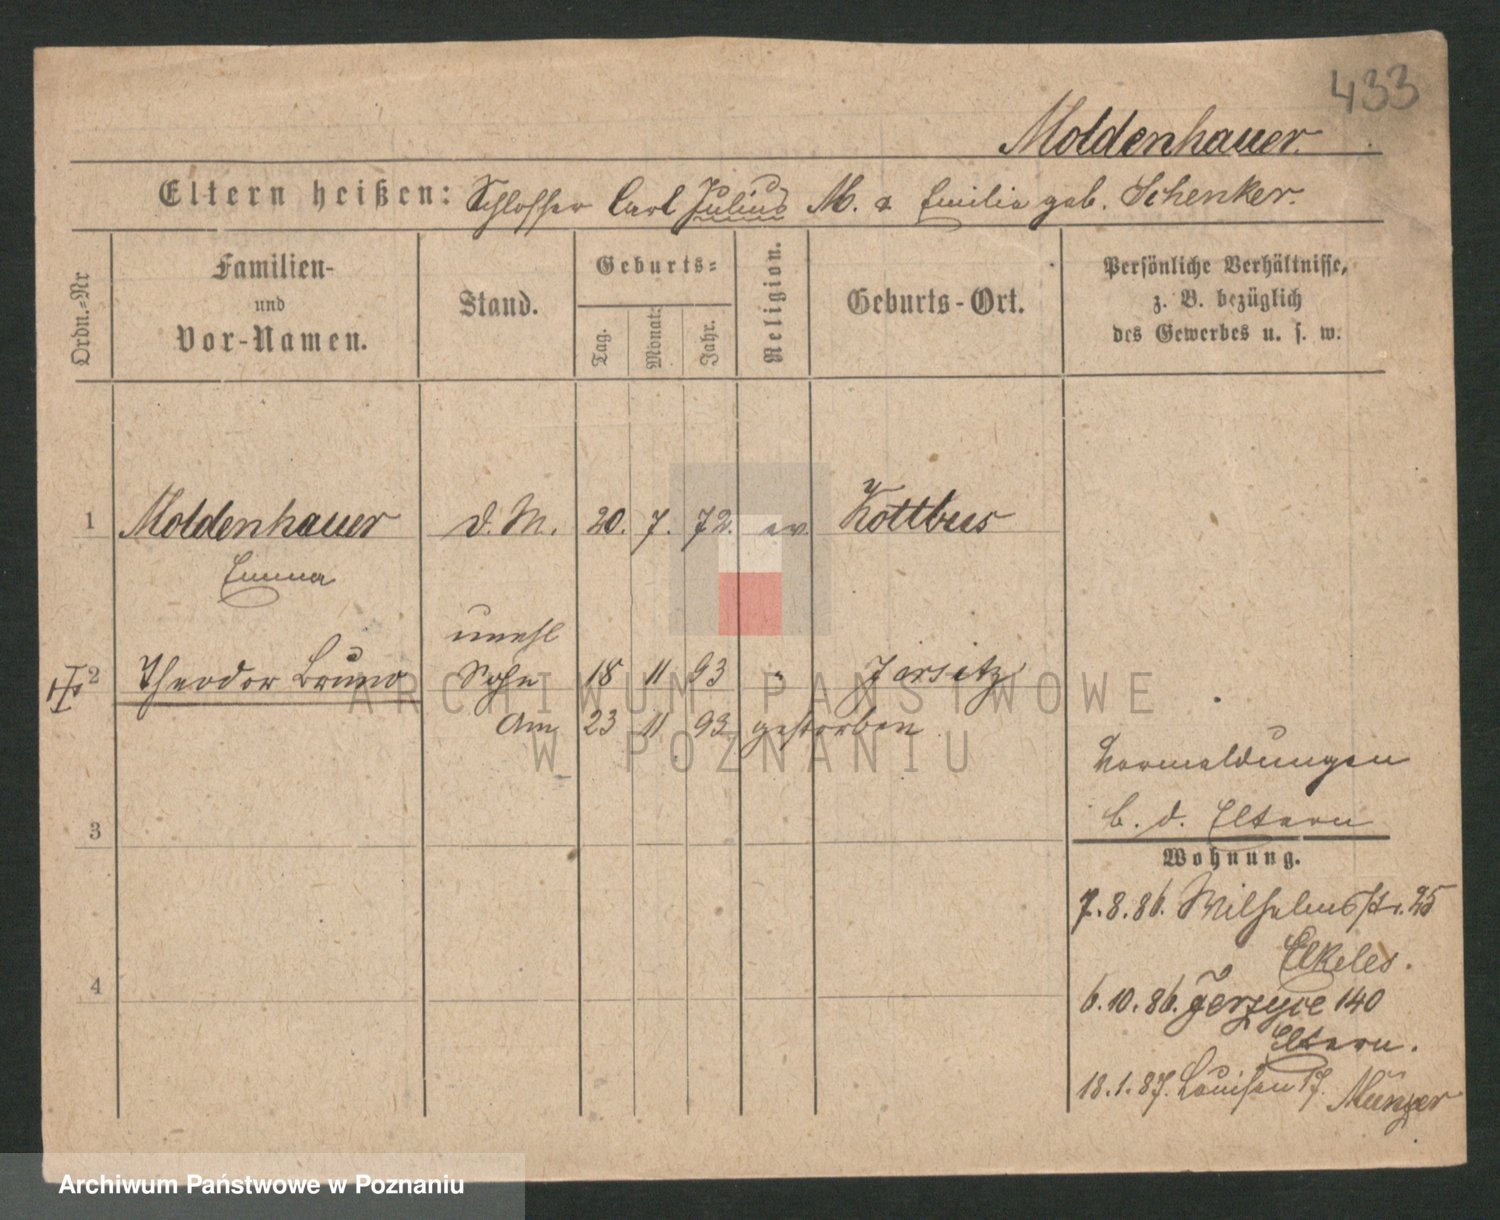 433
Moldenhauer.
Eltern heißen: Schlosser Carl Julius M. & Emilie geb. Schenker.
Ordn.-Nr
Familien-
und
Vor-Namen.
Stand.
Geburts-
Tag.
Monat.
Jahr.
Religion.
Geburts-Ort.
Persönliche Verhältnisse,
z. B. bezüglich
des Gewerbes u. s. w.
1 Moldenhauer d. M. 20. 7. 72. ev. Kottbus
Emma
unehl
2 Theodor Bruno Sohn 18 11 93 " Jersitz
Am 23 11 93 gestorben
Vormeldungen
b. d. Eltern
3
Wohnung.
7.8.86. Wilhelmsstr. 25
Elkeles.
4
6.10.86. Jerzyce 140
Eltern.
18.1.87. Louisen 17. Münzer
ARCHIWUM PAŃSTWOWE
W POZNANIU
Archiwum Państwowe w Poznaniu